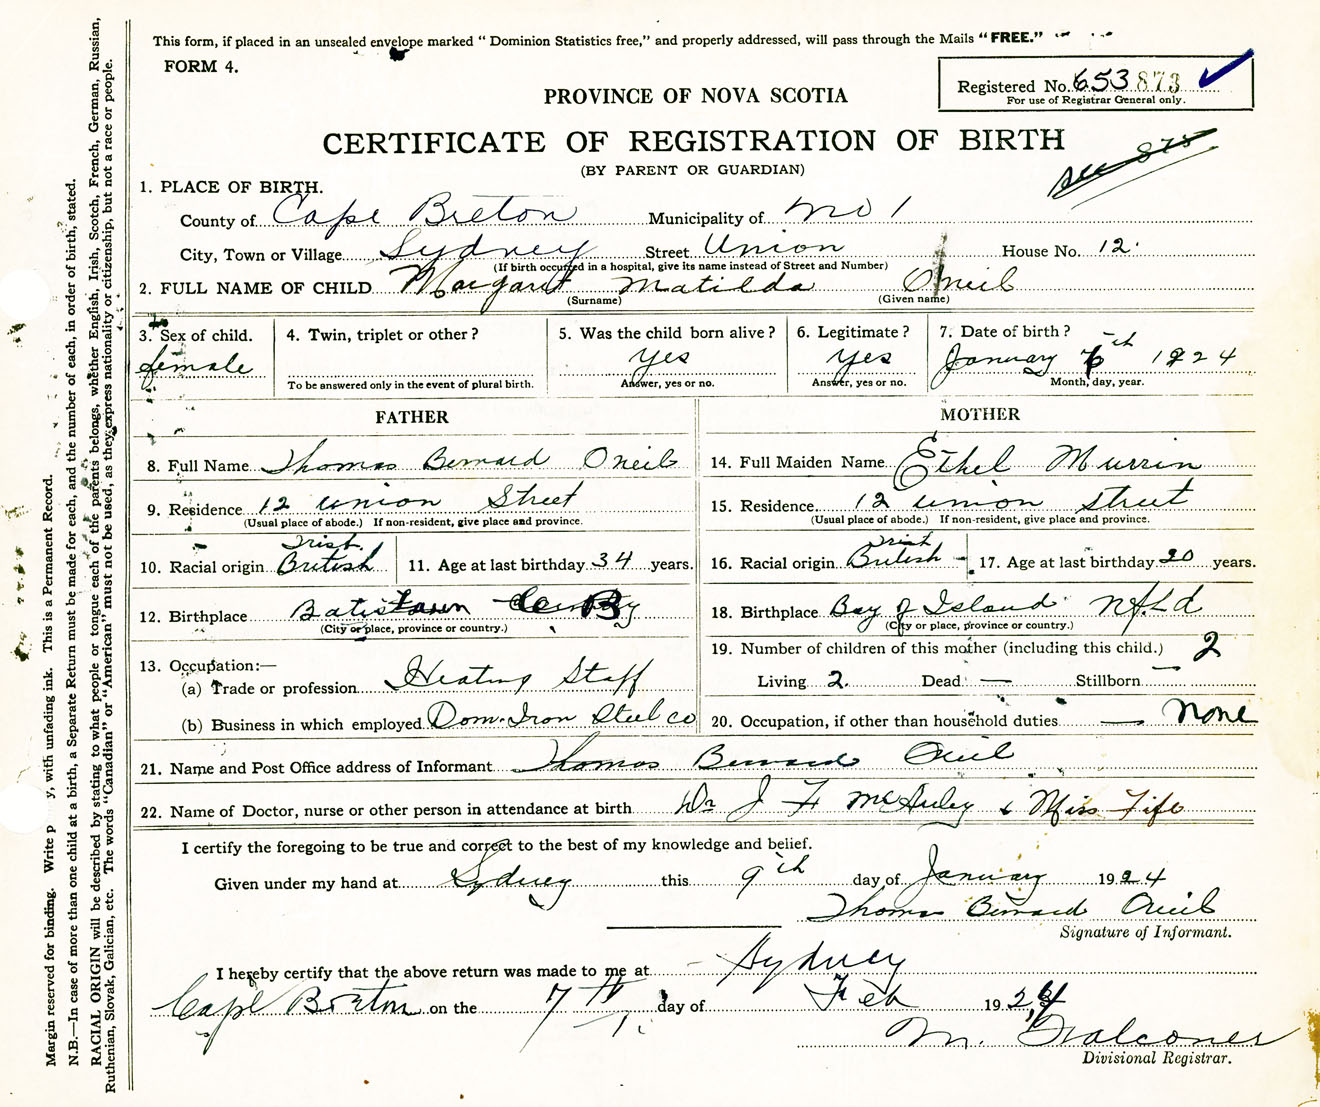 This form, if placed in an unsealed envelope marked "Dominion Statistics free," and properly addressed, will pass through the Mails "FREE."
FORM 4.
Registered No. 653 873
For use of Registrar General only.
PROVINCE OF NOVA SCOTIA
CERTIFICATE OF REGISTRATION OF BIRTH
(BY PARENT OR GUARDIAN)
1. PLACE OF BIRTH.
County of Cape Breton Municipality of No 1
City, Town or Village Sydney Street Union House No. 12.
(If birth occurred in a hospital, give its name instead of Street and Number)
2. FULL NAME OF CHILD Margaret Matilda Oneil
(Surname) (Given name)
3. Sex of child. 4. Twin, triplet or other? 5. Was the child born alive? 6. Legitimate? 7. Date of birth?
female yes yes January th 1924
To be answered only in the event of plural birth. Answer, yes or no. Answer, yes or no. Month, day, year.
FATHER MOTHER
8. Full Name Thomas Bernard Oneil 14. Full Maiden Name Ethel Murrin
9. Residence 12 union Street 15. Residence 12 union street
(Usual place of abode.) If non-resident, give place and province. (Usual place of abode.) If non-resident, give place and province.
Irish Irish
10. Racial origin British 11. Age at last birthday 34 years. 16. Racial origin British 17. Age at last birthday 20 years.
12. Birthplace 18. Birthplace Bay of Island Nfld
(City or place, province or country.) (City or place, province or country.)
19. Number of children of this mother (including this child.) 2
13. Occupation:—
(a) Trade or profession Heating Staff Living 2. Dead — Stillborn —
(b) Business in which employed Dom. Iron Steel co 20. Occupation, if other than household duties — None
21. Name and Post Office address of Informant Thomas Bernard Oneil
22. Name of Doctor, nurse or other person in attendance at birth Dr J F McAuley & Miss Fife
I certify the foregoing to be true and correct to the best of my knowledge and belief.
Given under my hand at Sydney this 9th day of January 1924
Thomas Bernard Oneil
Signature of Informant.
I hereby certify that the above return was made to me at Sydney
Cape Breton on the 7th day of Feb 1924
M. Falconer
Divisional Registrar.
Margin reserved for binding. Write p y, with unfading ink. This is a Permanent Record.
N.B.—In case of more than one child at a birth, a Separate Return must be made for each, and the number of each, in order of birth, stated.
RACIAL ORIGIN will be described by stating to what people or tongue each of the parents belongs, whether English, Irish, Scotch, French, German, Russian,
Ruthenian, Slovak, Galician, etc. The words "Canadian" or "American" must not be used, as they express nationality or citizenship, but not a race or people.